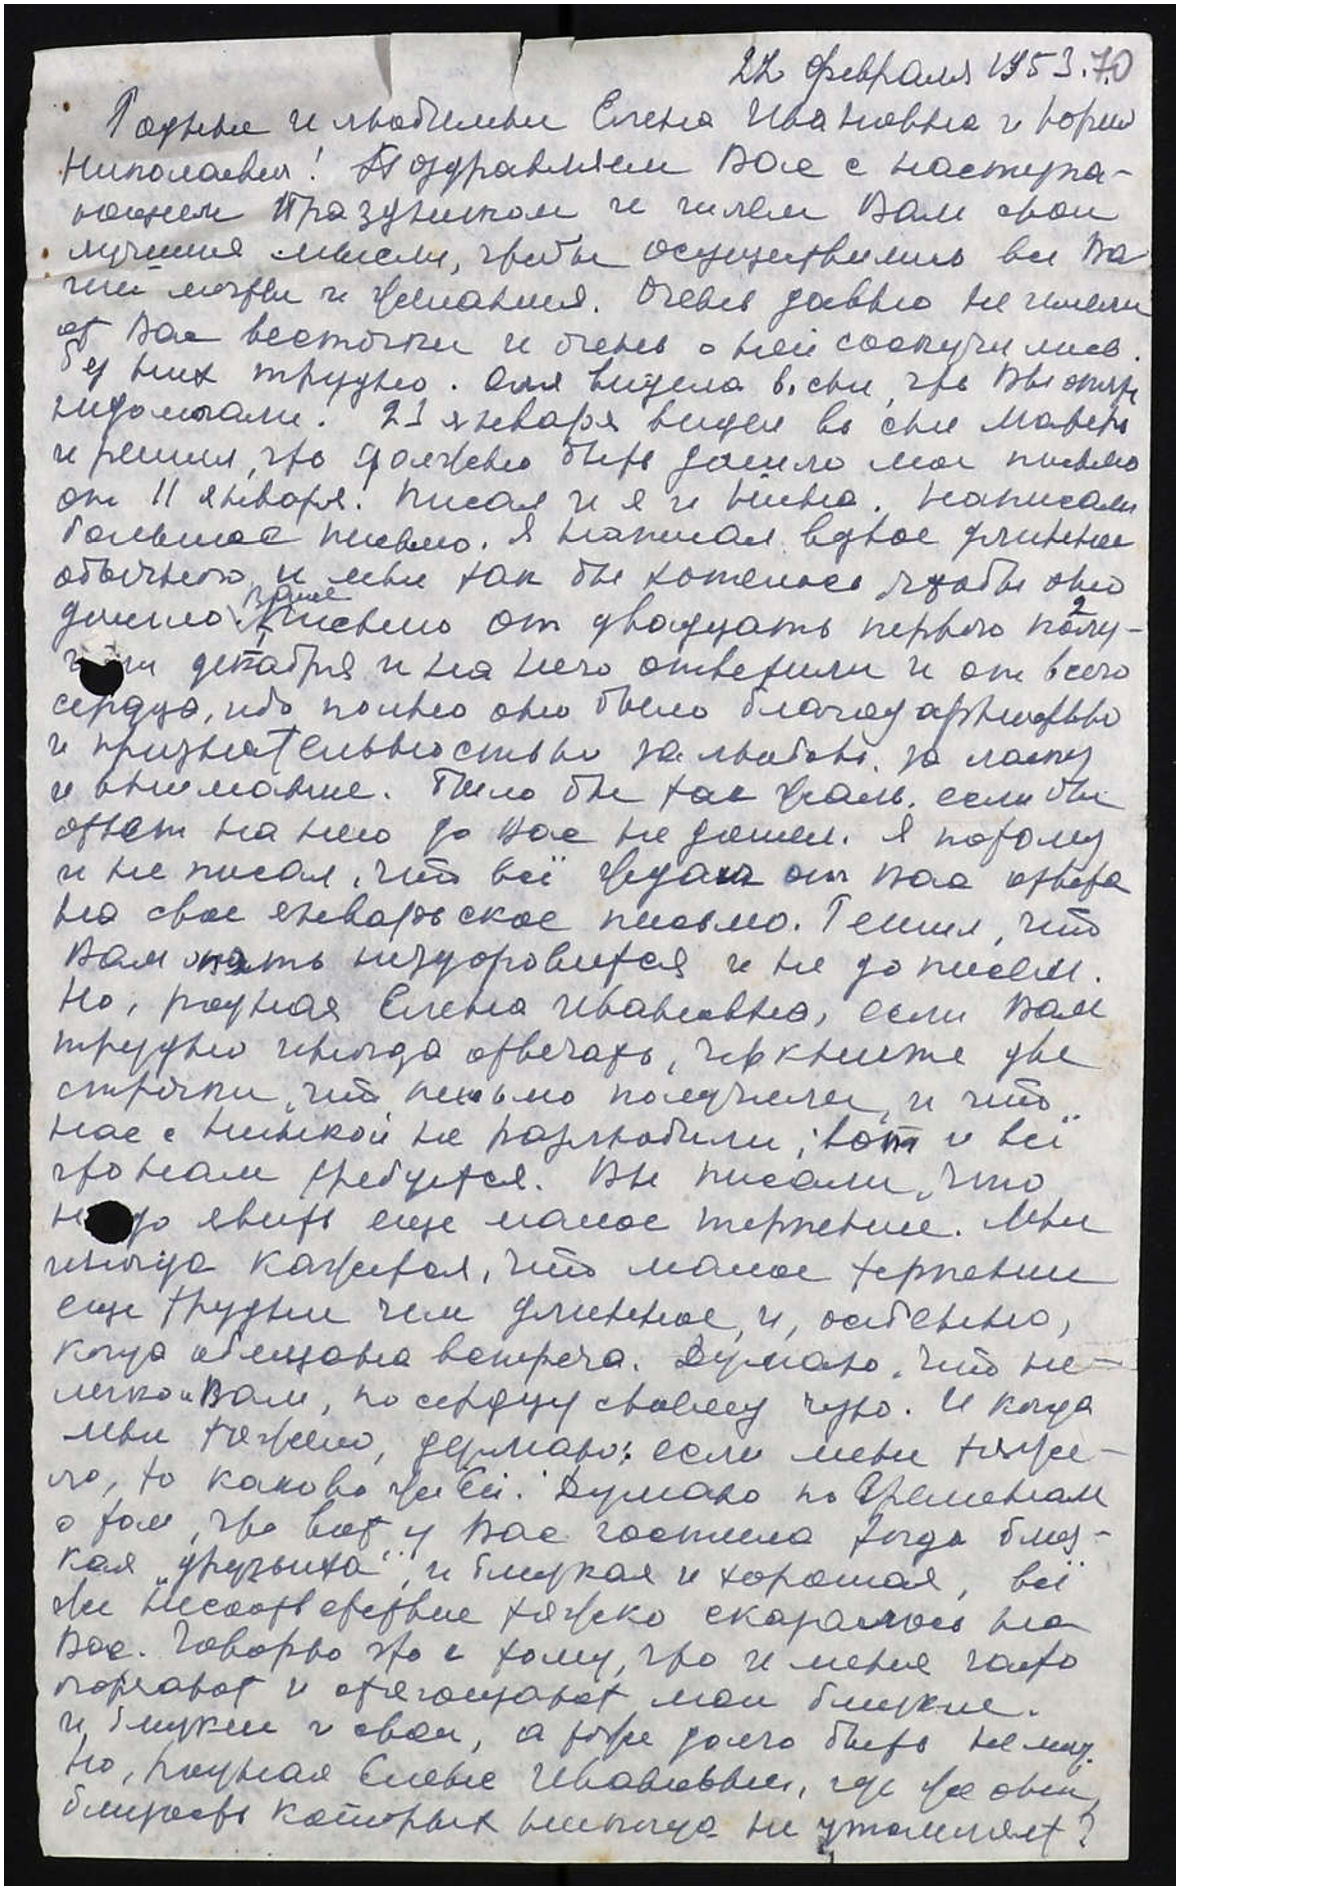 22 февраля 1953. 70
Родные и любимые Елена Ивановна и Юрий
Николаевич! Поздравляем Вас с наступа-
ющем Праздником и шлем Вам свои
лучшие мысли, чтобы осуществились все Ва
ши мечты и желания. Очень давно не имели
от Вас весточки и очень о ней соскучились.
Без них трудно. Оля видела в сне, что Вы опять
недомогали. 23 января видел во сне Матерь
и решил, что должно быть дошло мое письмо
от 11 января! Писал и я и Нина. Написали
большое письмо. Я написал вдвое длиннее
обычного и мне так бы хотелось чтобы оно
дошло. Ваше письмо от двадцать первого полу-
чили декабря и на него ответили и от всего
сердца, ибо полно оно было благодарностью
и признательностью за любовь, за ласку
и внимание. Было бы так жаль, если бы
ответ на него до Вас не дошел. Я потому
и не писал, что всё ждал от Вас ответа
на свое январьское письмо. Решил, что
Вам опять нездоровится и не до писем.
Но, родная Елена Ивановна, если Вам
трудно иногда отвечать, черкните две
строчки, что письмо получили, и что
нас с Нинкой не разлюбили; вот и всё
что нам требуется. Вы писали, что
надо явить еще малое терпение. Мне
иногда кажется, что малое терпение
еще труднее чем длинное, и, особенно,
когда обещана встреча. Думаю, что не-
легко и Вам, по сердцу своему чую. И когда
мне тяжело, думаю: если мне тяже-
ло, то каково же Ей. Думаю по временам
о том, что вот у Вас гостила тогда близ-
кая „друзьиха", и близкая и хорошая, всё
же несоответствие тяжко сказалось на
Вас. Говорю это к тому, что и меня часто
поражают и отягощают мои близкие.
и близкие и свои, а тоже долго быть не могу.
Но, родная Елена Ивановна, где же они,
близость которых никогда не утомляет?